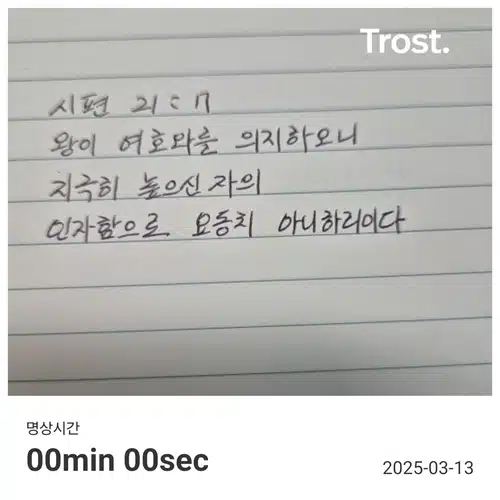 Trost.
시편 21:7
왕이 여호와를 의지하오니
지극히 높으신 자의
인자함으로 요동치 아니하리이다
명상시간
00min 00sec
2025-03-13